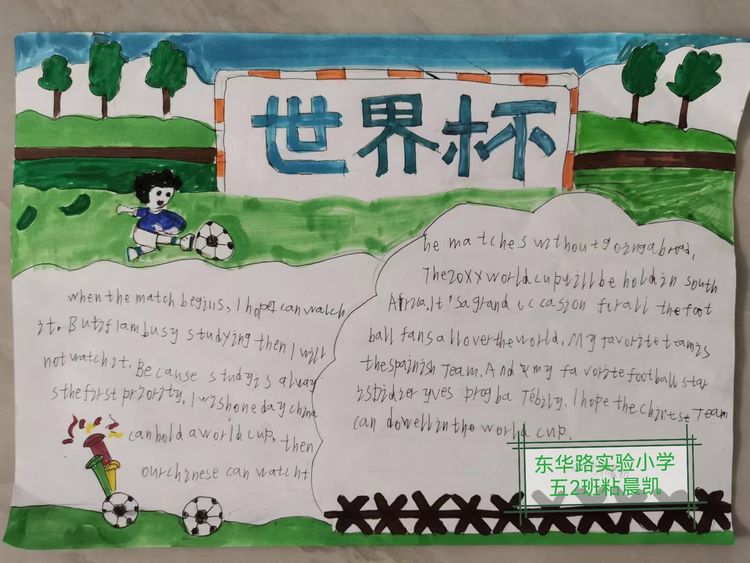 世界杯
when the match begins, I hope I can watch
it. But if I am busy studying then I will
not watch it. Because study is alway
s the first priority, I wish one day china
can hold a world cup, then
our chinese can watcht
he matches without going abroad,
The 20XX world cup will be hold in south
Africa. It's a grand occasion for all the foot
ball fans all over the world. My favorite team is
the spainish Team. And my favorite football star
is Didier yves drogba Tebily. I hope the chinese Team
can do well in the world cup.
东华路实验小学
五2班粘晨凯